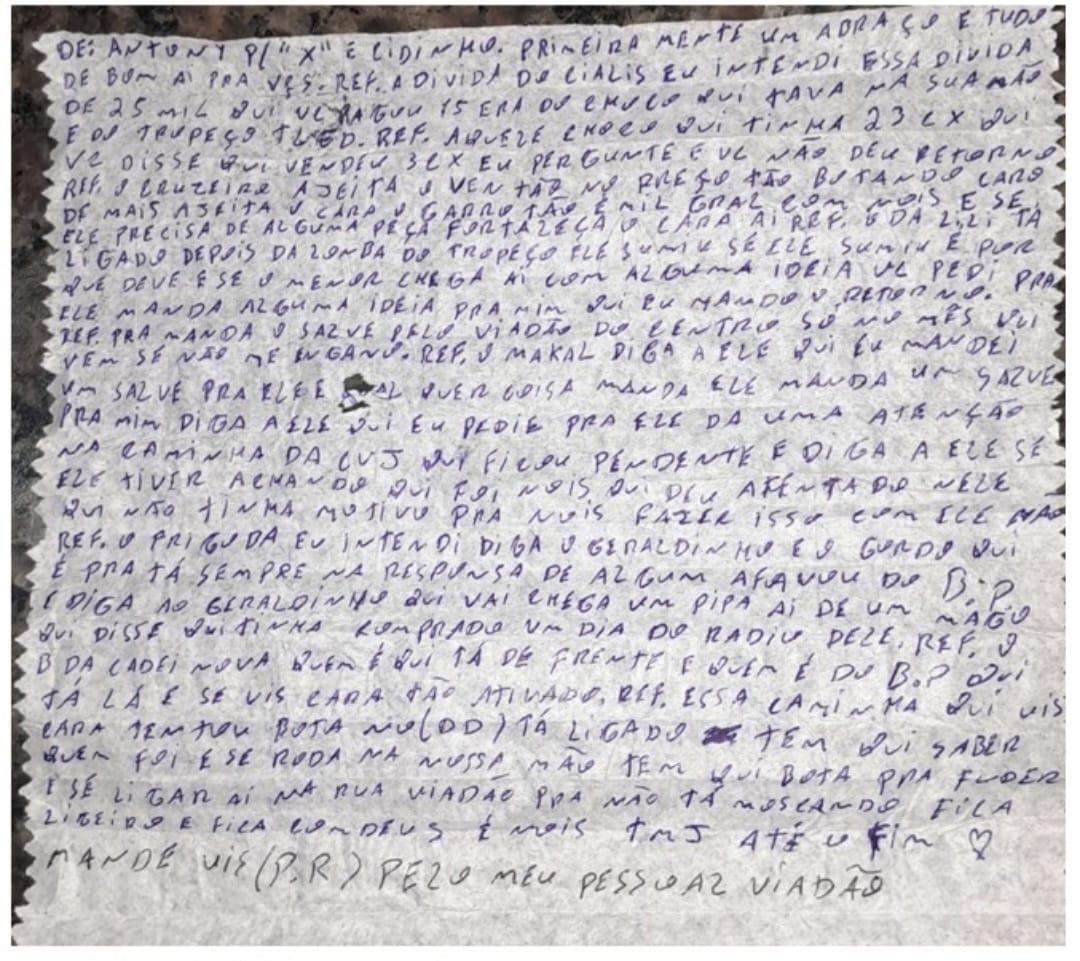 DE: ANTONY P/ "X" E LIDINHO. PRIMEIRA MENTE UM ABRAÇO E TUDO
DE BOM AI PRA VÇS. REF. A DIVIDA DO CIALIS EU INTENDI ESSA DIVIDA
DE 25 MIL QUI VC PAGOU 15 ERA DO CHOCO QUI TAVA NA SUA MÃO
E DO TROPEÇO REF. AQUELE CHOCO QUI TINHA 23 CX QUI
VC DISSE QUI VENDEU 3 CX EU PERGUNTE E VC NÃO DEU RETORNO
REF. O CRUZEIRO AJEITA O VENTÃO NO PREÇO TÃO BOTANDO CARO
DE MAIS AJEITA O CARA O GARROTÃO É MIL GRAL COM NOIS E SE
ELE PRECISA DE ALGUMA PEÇA FORTALEÇA O CARA AI REF. O DA LILI TÁ
LIGADO DEPOIS DA ZOMBA DO TROPEÇO ELE SUMIU SE ELE SUMIU É POR
QUE DEVE E SE O MENOR CHEGA AI COM ALGUMA IDEIA VC PEDI PRA
ELE MANDA ALGUMA IDEIA PRA MIM QUI EU MANDO O RETORNO.
REF. PRA MANDA O SALVE PELO VIADÃO DO CENTRO SÓ NO MÊS QUI
VEM SE NÃO ME ENGANO. REF. O MAKAL DIGA A ELE QUI EU MANDEI
UM SALVE PRA ELE E QUER COISA MANDA ELE MANDA UM SALVE
PRA MIM DIGA A ELE QUI EU PEDIE PRA ELE DA UMA ATENÇÃO
NA CAMINHA DA CUJ QUI FICOU PENDENTE E DIGA A ELE SE
ELE TIVER ACHANDO QUI FOI NOIS QUI DEU ATENTADO NELE
QUI NÃO TINHA MOTIVO PRA NOIS FAZER ISSO COM ELE NÃO
REF. O PRIGUDA EU INTENDI DIGA O GERALDINHO E O GORDO QUI
É PRA TÁ SEMPRE NA RESPONSA DE ALGUM AFAVOU DO B.P
E DIGA AO GERALDINHO QUI VAI CHEGA UM PIPA AI DE UM MAGO
QUI DISSE QUI TINHA COMPRADO UM DIA DO RADIO DELE. REF. O
B DA CADEI NOVA QUEM É QUI TÁ DE FRENTE E QUEM É DO B.P QUI
TÁ LÁ E SE VIS CARA TÃO ATIVADO. REF. ESSA CAMINHA QUI VIS
CARA TENTOU BOTA NO (DD) TÁ LIGADO TEM QUI SABER
QUEM FOI E SE RODA NA NOSSA MÃO TEM QUI BOTA PRA FUDER
E SE LIGAR AI NA RUA VIADÃO PRA NÃO TÁ MOSCANDO FICA
LIGEIRO E FICA COM DEUS É NOIS TMJ ATÉ O FIM ♡
MANDE VIS (P.R) PELO MEU PESSOAL VIADÃO